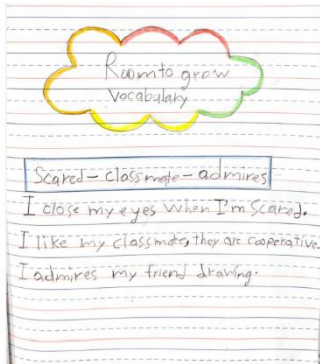 Room to grow
vocabulary
Scared - classmate - admires
I close my eyes when I'm scared.
I like my classmate, they are cooperative.
I admires my friend drawing.